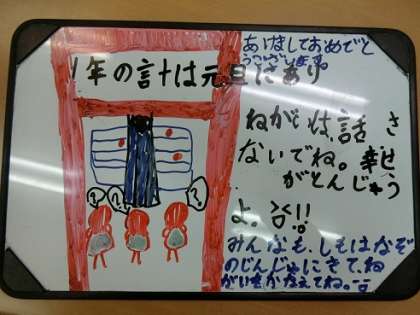 1年の計は元旦にあり
あけましておめでと
うございます。
ねがいは、話さ
ないでね。幸せ
がとんじゃう
よ。
みんなも、しもはなぞ
のじんじゃにきて、ね
がいをかなえてね。